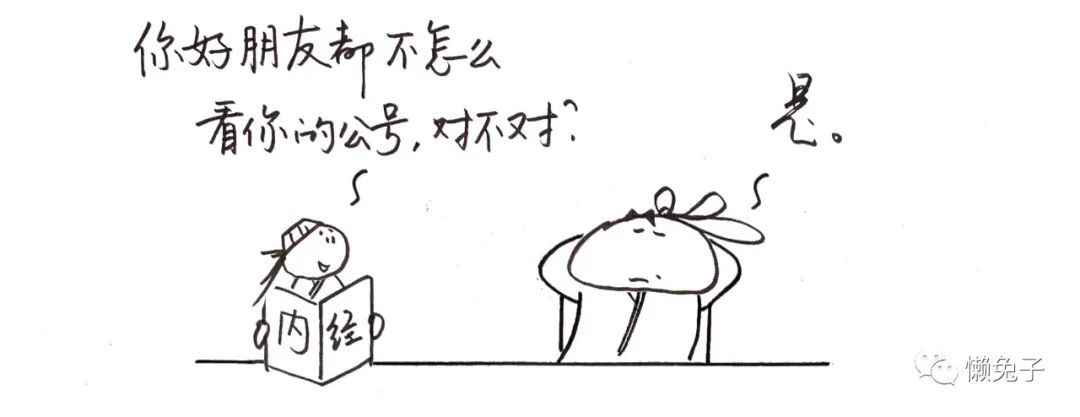 你好朋友都不怎么
看你的公号，对不对？
是。
内经
懒兔子